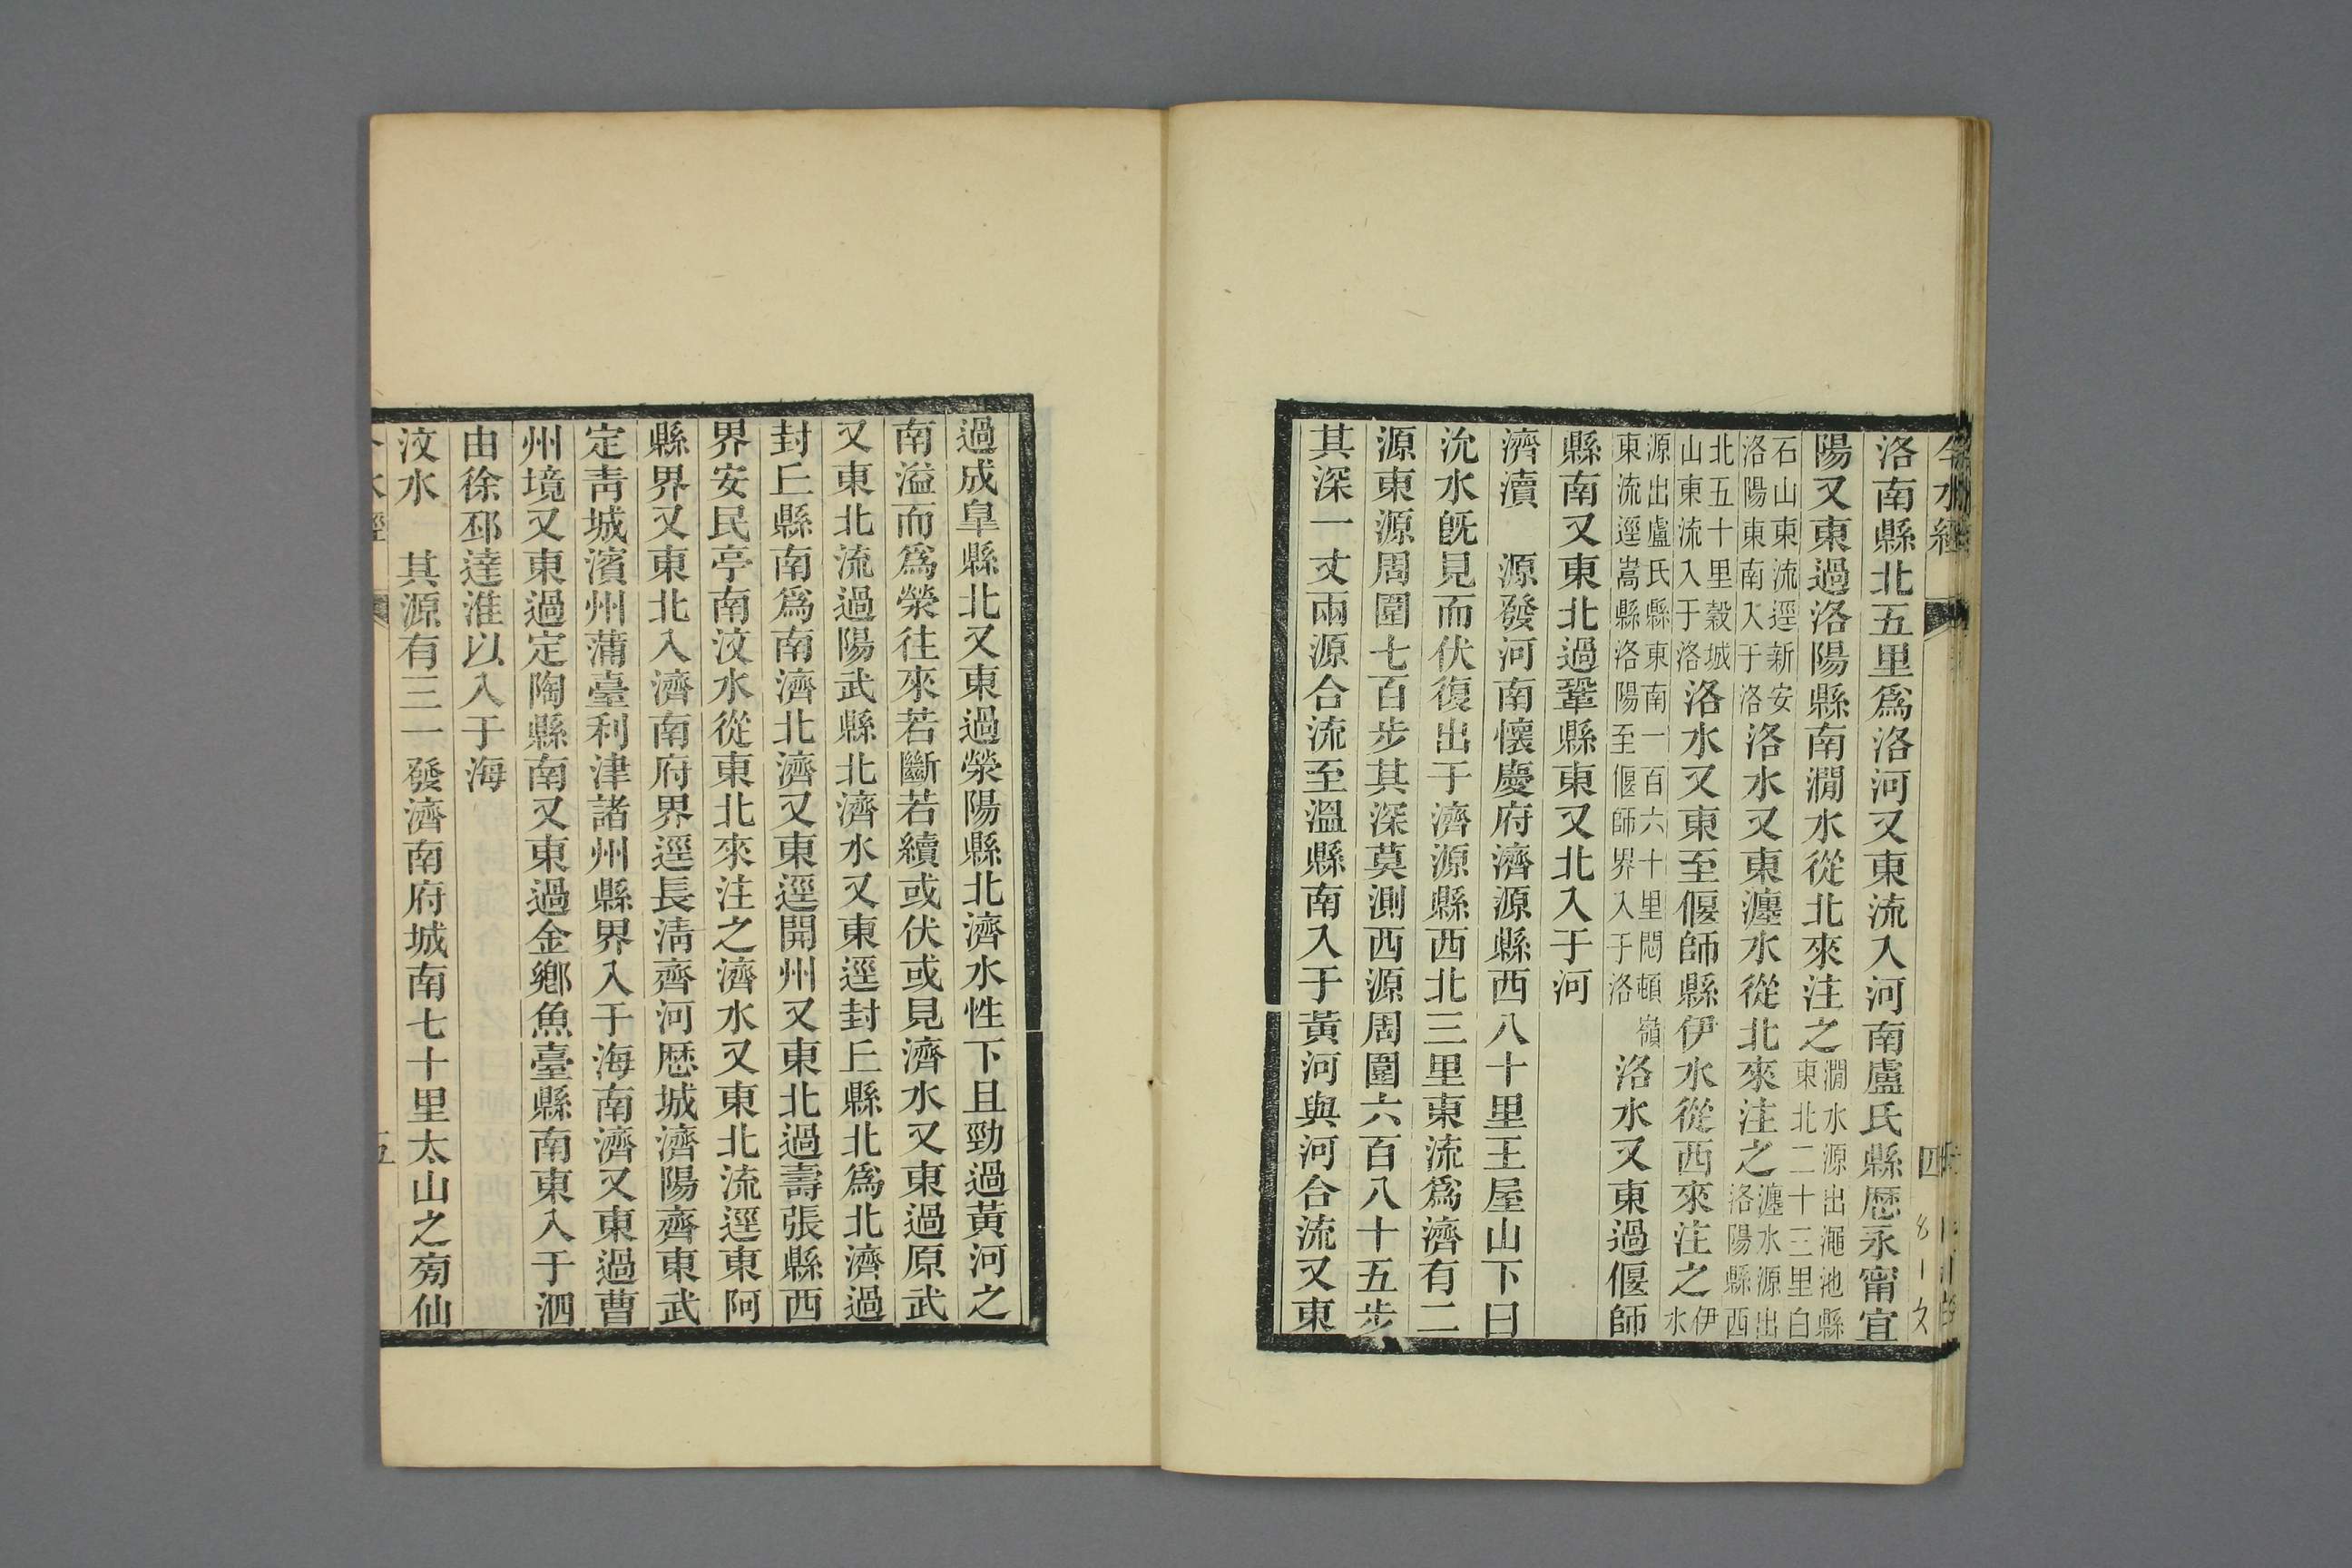 今水經
四
洛南縣北五里爲洛河又東流入河南盧氏縣歴永甯宜
陽又東過洛陽縣南澗水從北來注之澗水源出澠池縣東北二十三里白
石山東流逕新安洛陽東南入于洛洛水又東瀍水從北來注之瀍水源出洛陽縣西
北五十里穀城山東流入于洛洛水又東至偃師縣伊水從西來注之伊水
源出盧氏縣東南一百六十里悶頓嶺東流逕嵩縣洛陽至偃師界入于洛洛水又東過偃師
縣南又東北過鞏縣東又北入于河
濟瀆　源發河南懷慶府濟源縣西八十里王屋山下曰
沇水旣見而伏復出于濟源縣西北三里東流爲濟有二
源東源周圍七百步其深莫測西源周圍六百八十五步
其深一丈兩源合流至溫縣南入于黃河與河合流又東
過成臯縣北又東過滎陽縣北濟水性下且勁過黃河之
南溢而爲滎往來若斷若續或伏或見濟水又東過原武
又東北流過陽武縣北濟水又東逕封丘縣北爲北濟過
封丘縣南爲南濟北濟又東逕開州又東北過壽張縣西
界安民亭南汶水從東北來注之濟水又東北流逕東阿
縣界又東北入濟南府界逕長淸齊河歴城濟陽齊東武
定靑城濱州蒲臺利津諸州縣界入于海南濟又東過曹
州境又東過定陶縣南又東過金鄉魚臺縣南東入于泗
由徐邳達淮以入于海
汶水　其源有三一發濟南府城南七十里太山之旁仙
水經
五